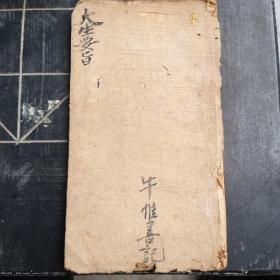 大生要旨
牛惟善記